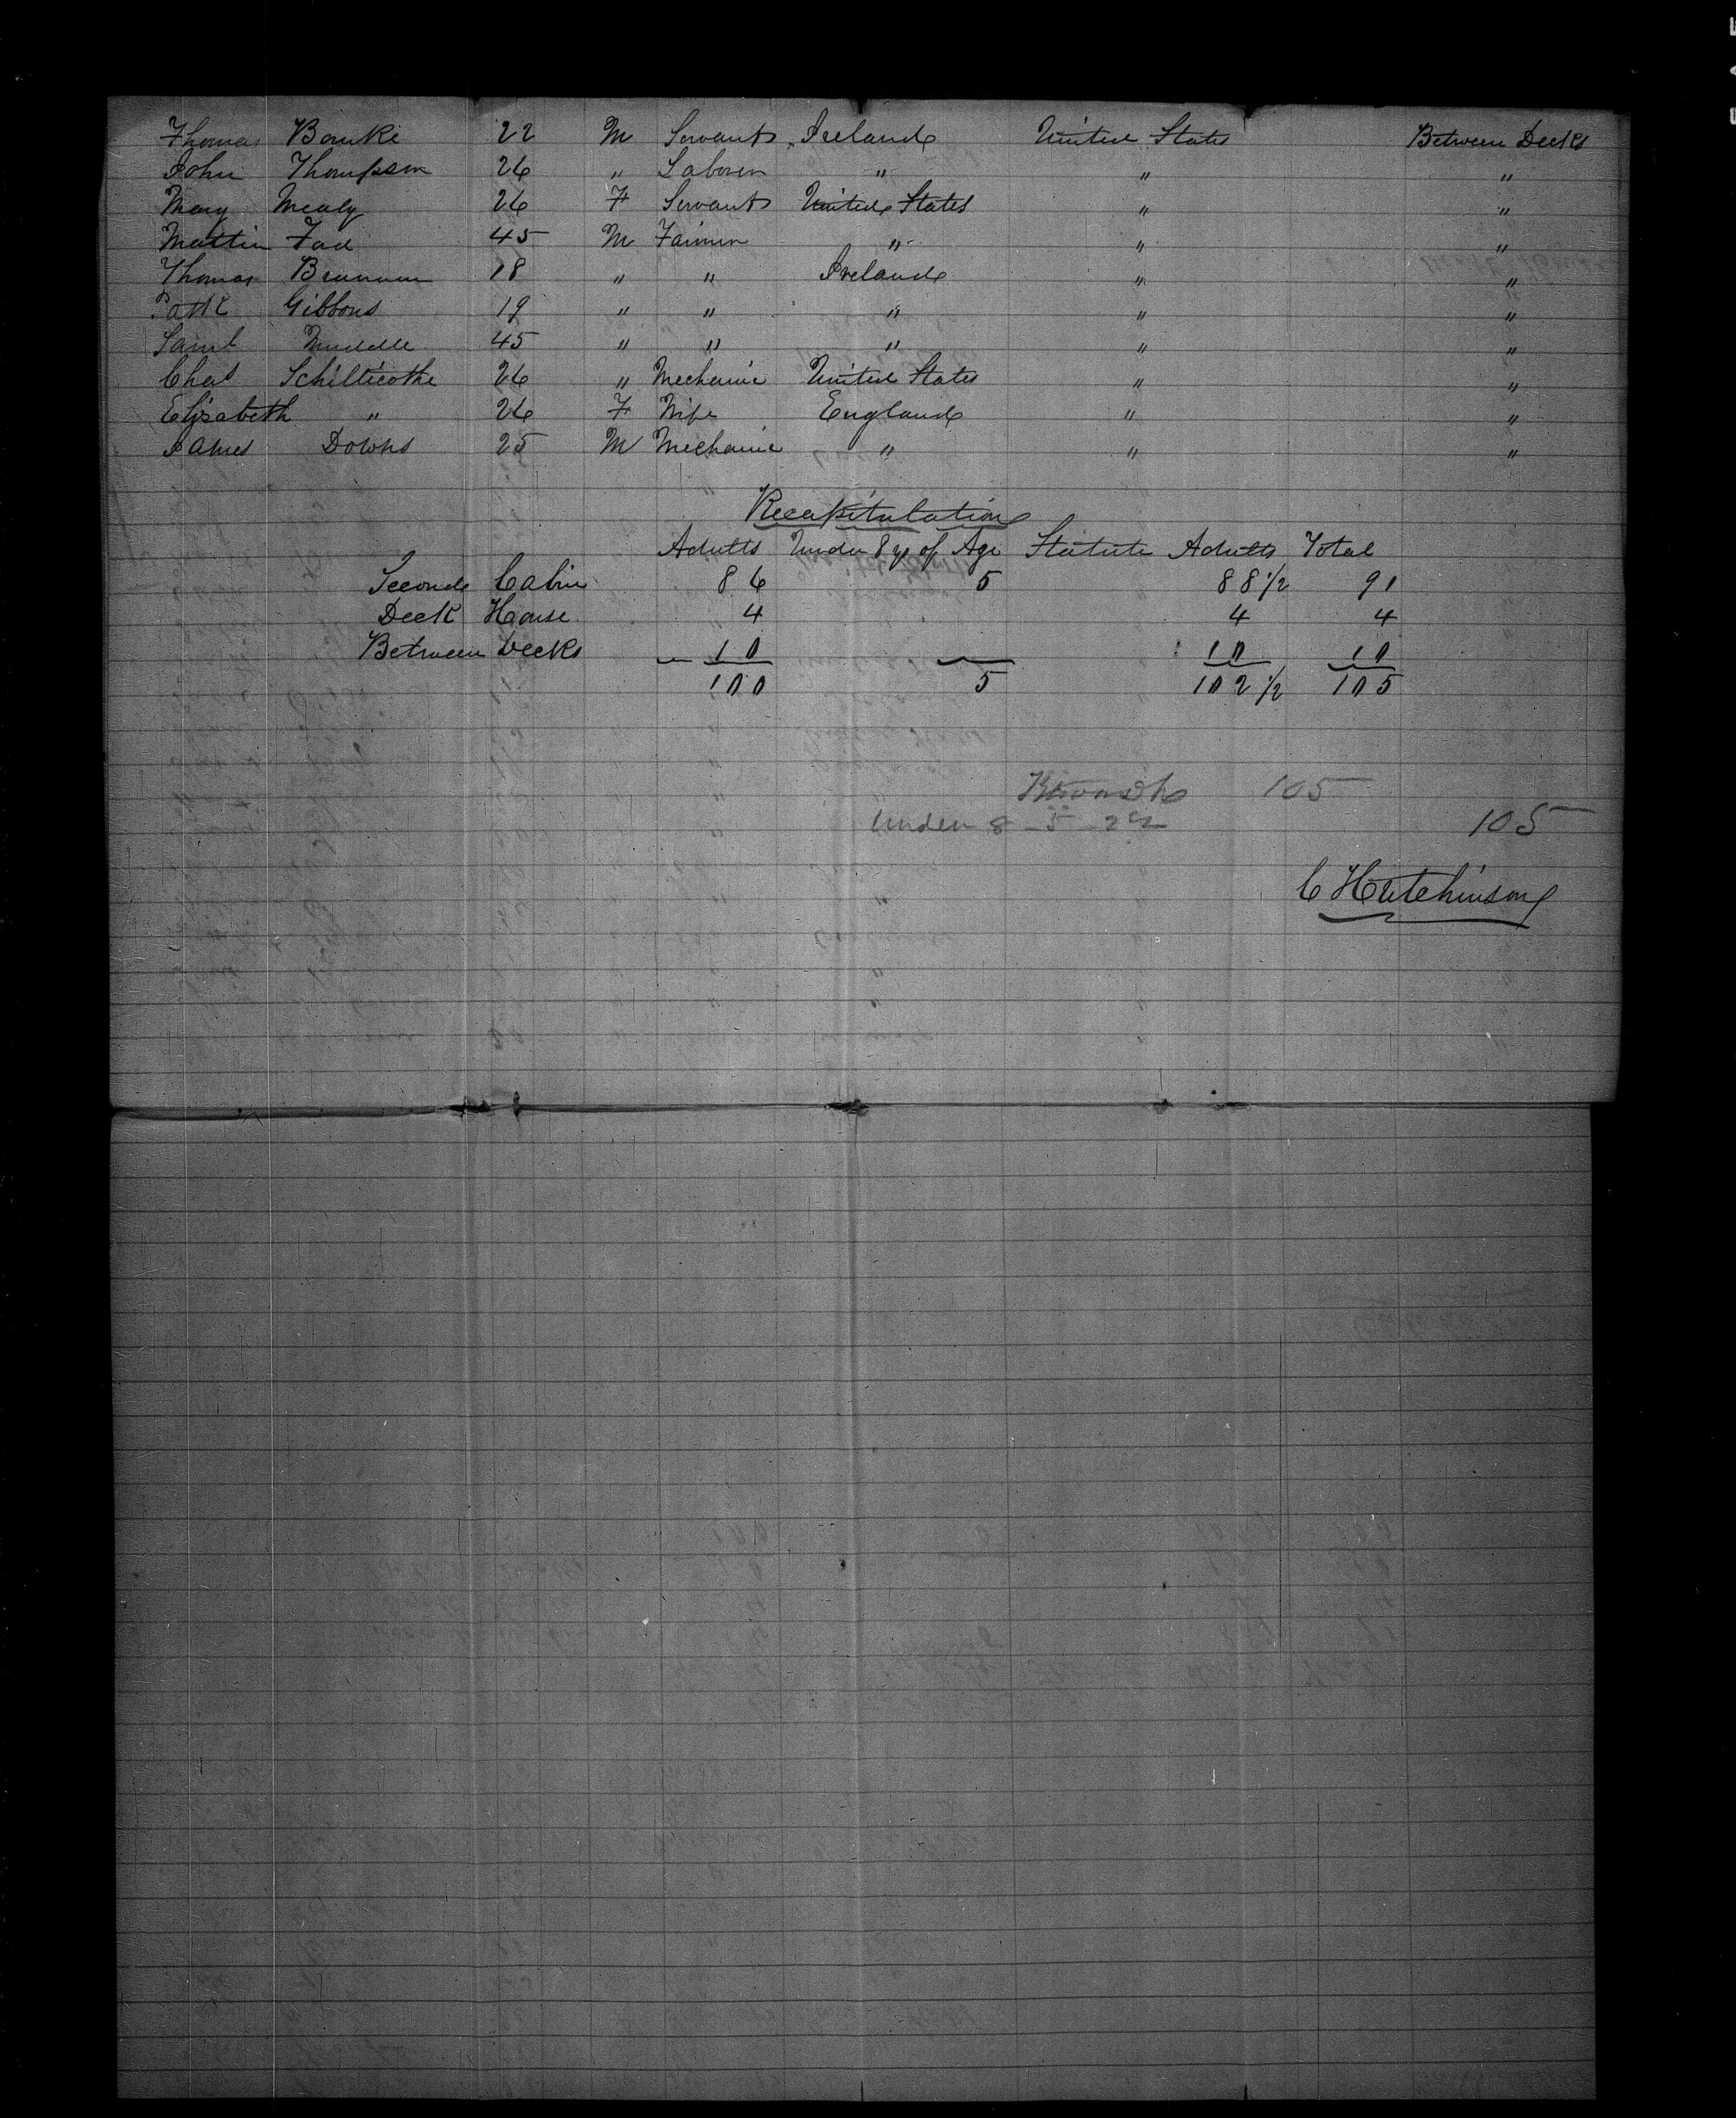 Thomas Bourke 22 M Servant Ireland United States Between Decks
John Thompson 26 " Laborer " " "
Mary Mealy 26 F Servant United States " "
Martin Fad 45 M Farmer " " "
Thomas Brennan 18 " " Ireland " "
Patk Gibbons 19 " " " " "
Saml 45 " " " " "
Chas Schillicothe 26 " Mechanic United States " "
Elizabeth " 26 F Wife England " "
James Downs 25 M Mechanic " " "
Recapitulation
Adults Under 8 yrs of Age Statute Adults Total
Second Cabin 86 5 88 1/2 91
Deck House 4 4 4
Between Decks 10 10 10
100 5 102 1/2 105
105
Under 8 - 5 - 2 1/2 105
C Hutchinson